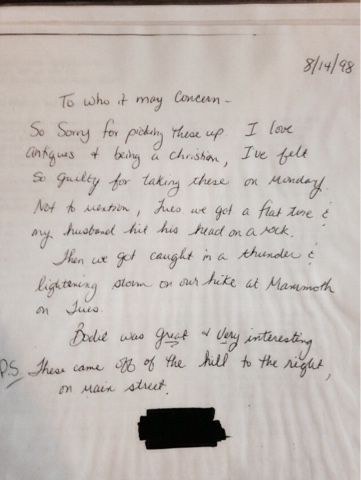 8/14/98
To who it may Concern -
So Sorry for picking these up I love
antiques & being a christian, I've felt
so guilty for taking these on Monday.
Not to mention, Tues. we got a flat tire &
my husband hit his head on a rock.
Then we got caught in a thunder &
lightening storm on our hike at Mammoth
on Tues.
Bodie was Great & Very interesting
P.S. These came off of the hill to the right,
on main street.